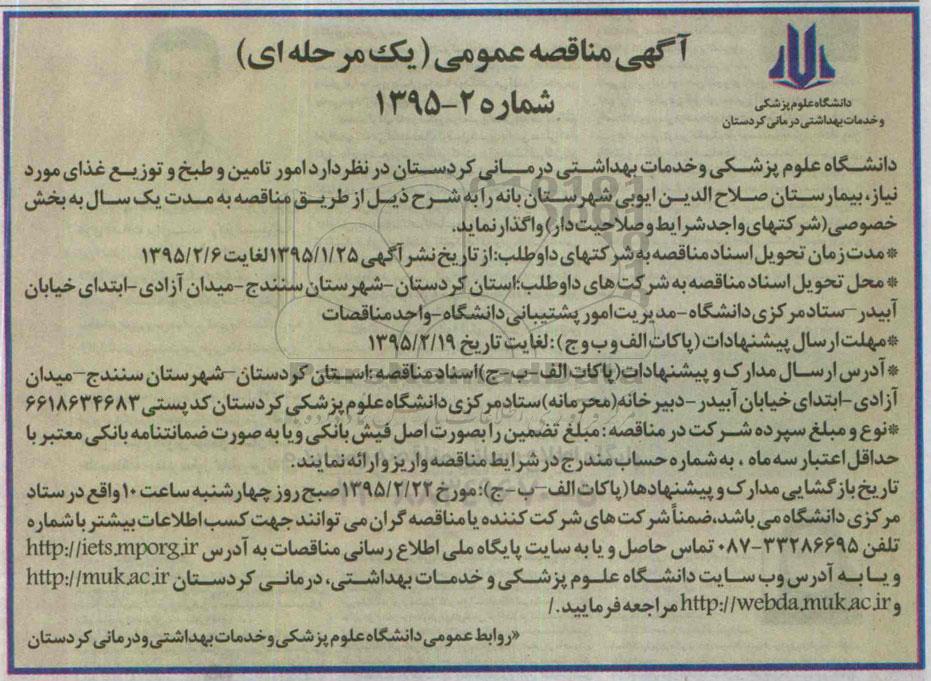 آگهی مناقصه عمومی (یک مرحله ای)
شماره ۲-۱۳۹۵
دانشگاه علوم پزشکی
و خدمات بهداشتی درمانی کردستان
دانشگاه علوم پزشکی و خدمات بهداشتی درمانی کردستان در نظر دارد امور تامین و طبخ و توزیع غذای مورد
نیاز، بیمارستان صلاح الدین ایوبی شهرستان بانه را به شرح ذیل از طریق مناقصه به مدت یک سال به بخش
خصوصی (شرکتهای واجد شرایط و صلاحیت دار) واگذار نماید.
*مدت زمان تحویل اسناد مناقصه به شرکتهای داوطلب: از تاریخ نشر آگهی ۱۳۹۵/۱/۲۵ لغایت ۱۳۹۵/۲/۶
* محل تحویل اسناد مناقصه به شرکت های داوطلب: استان کردستان -شهرستان سنندج-میدان آزادی-ابتدای خیابان
آبیدر-ستاد مرکزی دانشگاه-مدیریت امور پشتیبانی دانشگاه-واحد مناقصات
*مهلت ارسال پیشنهادات (پاکات الف و ب و ج): لغایت تاریخ ۱۳۹۵/۲/۱۹
* آدرس ارسال مدارک و پیشنهادات (پاکات الف-ب-ج) اسناد مناقصه: استان کردستان-شهرستان سنندج-میدان
آزادی-ابتدای خیابان آبیدر-دبیرخانه (محرمانه) ستاد مرکزی دانشگاه علوم پزشکی کردستان کد پستی ۶۶۱۸۶۳۴۶۸۳
*نوع و مبلغ سپرده شرکت در مناقصه: مبلغ تضمین را بصورت اصل فیش بانکی و یا به صورت ضمانتنامه بانکی معتبر با
حداقل اعتبار سه ماه ، به شماره حساب مندرج در شرایط مناقصه واریز و ارائه نمایند.
تاریخ بازگشایی مدارک و پیشنهادها (پاکات الف -ب-ج): مورخ ۱۳۹۵/۲/۲۲ صبح روز چهارشنبه ساعت ۱۰ واقع در ستاد
مرکزی دانشگاه می باشد، ضمناً شرکت های شرکت کننده یا مناقصه گران می توانند جهت کسب اطلاعات بیشتر با شماره
تلفن ۳۳۲۸۶۶۹۵-۰۸۷ تماس حاصل و یا به سایت پایگاه ملی اطلاع رسانی مناقصات به آدرس http://iets.mporg.ir
و یا به آدرس وب سایت دانشگاه علوم پزشکی و خدمات بهداشتی، درمانی کردستان http://muk.ac.ir
و http://webda.muk.ac.ir مراجعه فرمایید./
«روابط عمومی دانشگاه علوم پزشکی و خدمات بهداشتی و درمانی کردستان